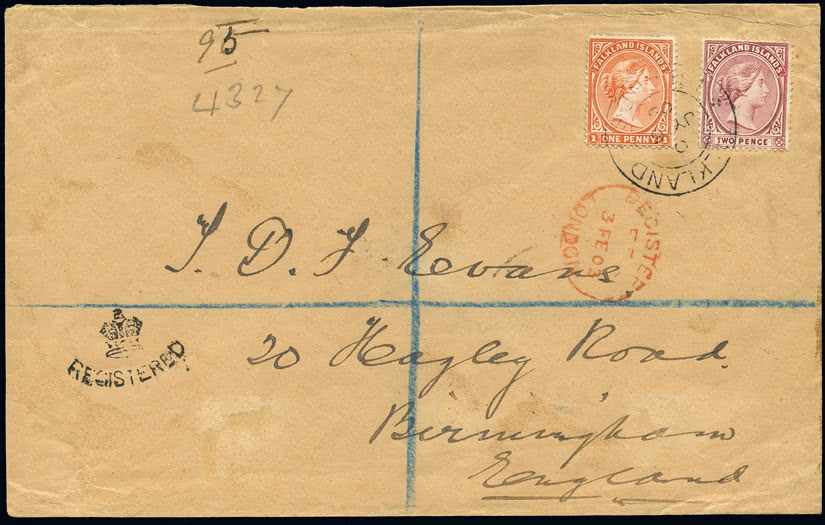 95
4327
FALKLAND ISLANDS
1 ONE PENNY 1
FALKLAND ISLANDS
TWO PENCE
KLAND
REGISTERED
LONDON
3 FE 03
REGISTERED
J. D. F. Evans
20 Hagley Road
Birmingham
England